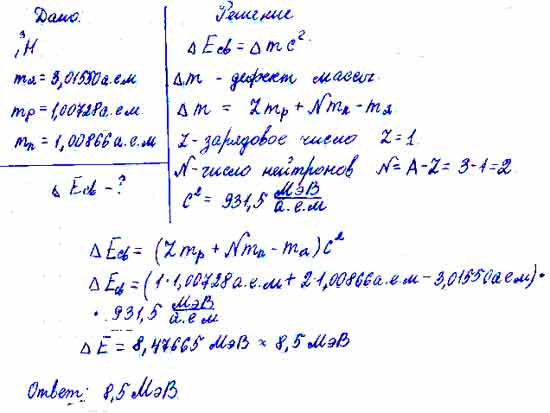 Дано:
³₁H
mя = 3,01550 а.е.м
mр = 1,00728 а.е.м.
mn = 1,00866 а.е.м
Δ Eсв - ?
Решение
Δ Eсв = Δ m c²
Δ m - дефект массы.
Δ m = Z mp + N mn - mя
Z - зарядовое число Z = 1
N - число нейтронов N = A - Z = 3 - 1 = 2
c² = 931,5 МэВ/а.е.м
Δ Eсв = (Z mp + N mn - mя) c²
Δ Eсв = (1 · 1,00728 а.е.м + 2 · 1,00866 а.е.м - 3,01550 а.е.м) ·
· 931,5 МэВ/а.е.м
Δ E = 8,47665 МэВ ≈ 8,5 МэВ
Ответ: 8,5 МэВ.